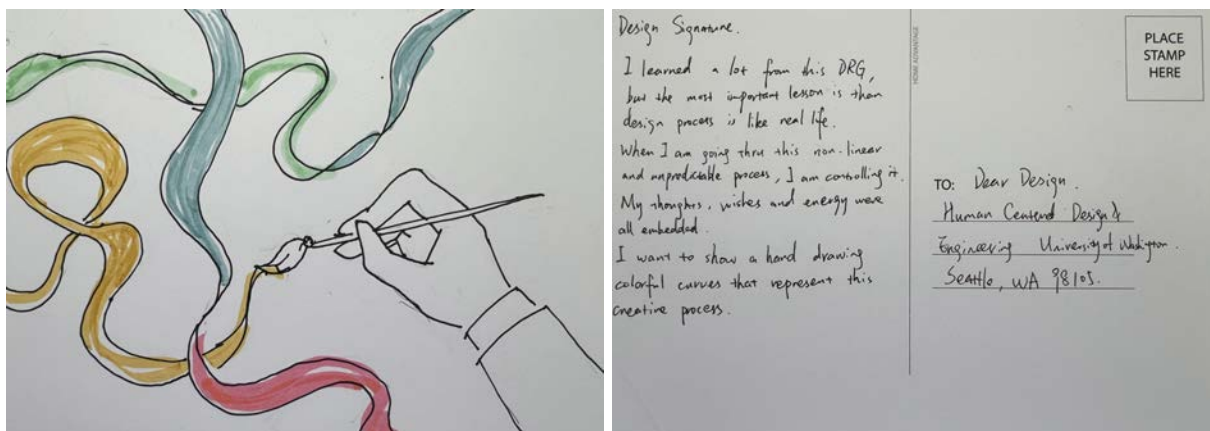 Design Signature.
I learned a lot from this DRG,
but the most important lesson is than
design process is like real life.
When I am going thru this non-linear
and unpredictable process, I am controlling it.
My thoughts, wishes and energy were
all embedded.
I want to show a hand drawing
colorful curves that represent this
creative process.
HOME ADVANTAGE
PLACE
STAMP
HERE
TO: Dear Design.
Human Centered Design &
Engineering University of Washington.
Seattle, WA 98105.